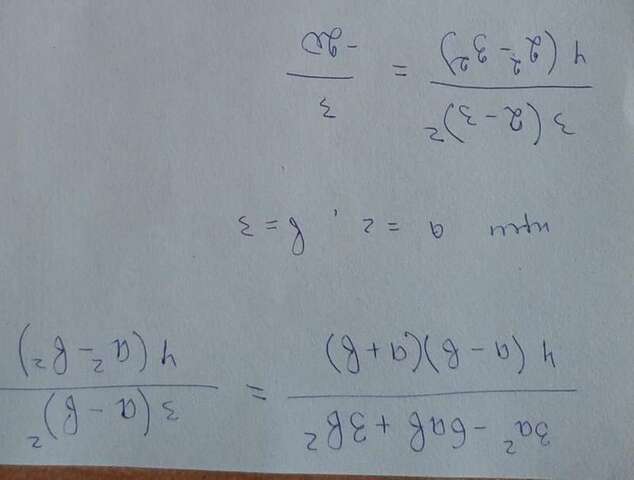 (3a² - 6ab + 3b²) / (4(a - b)(a + b)) = (3(a - b)²) / (4(a² - b²))
при a = 2, b = 3
(3(2 - 3)²) / (4(2² - 3²)) = 3 / -20